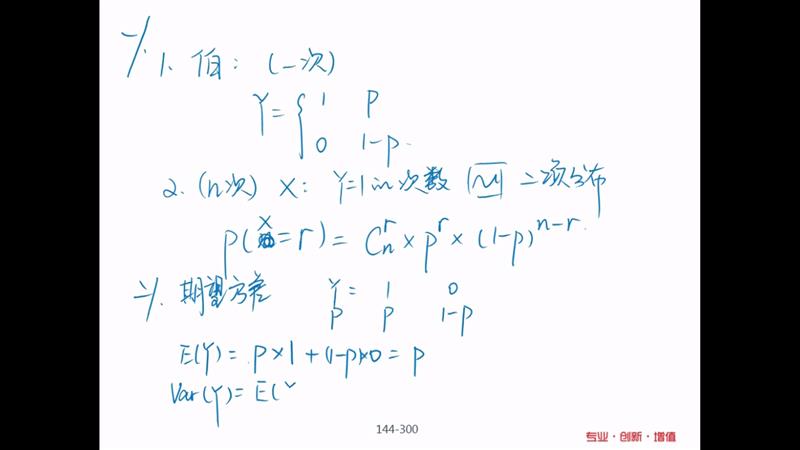 一、1、伯：(一次)
Y= { 1 P
0 1-p.
2、(n次) X: Y=1的次数 二项分布
P(X=r) = Cₙʳ × pʳ × (1-p)ⁿ⁻ʳ.
二、期望方差 Y = 1 0
P P 1-p
E(Y) = P×1 + (1-p)×0 = p
Var(Y) = E(Y
144-300
专业·创新·增值